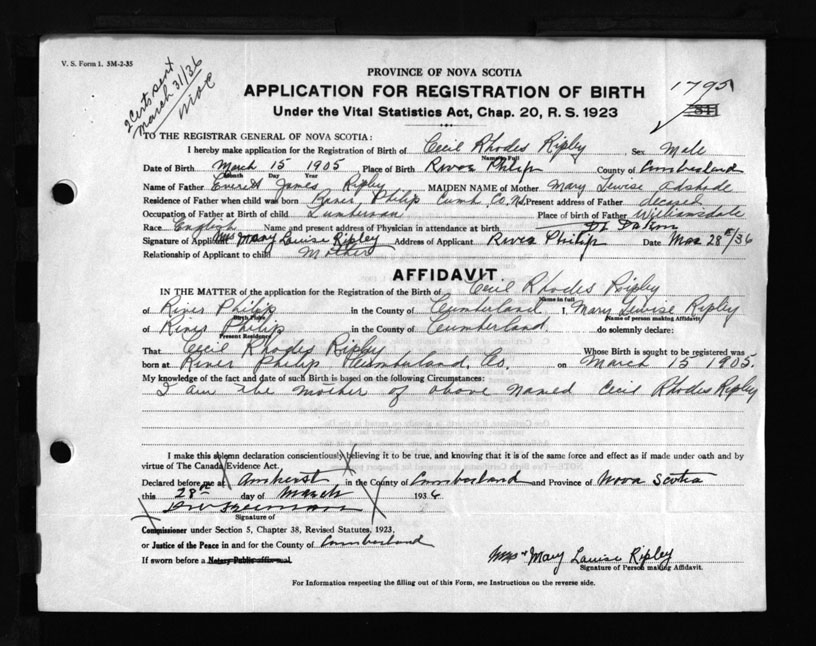 V. S. Form 1. 5M-2-35
2 Certs sent
March 31/36
PROVINCE OF NOVA SCOTIA
APPLICATION FOR REGISTRATION OF BIRTH
Under the Vital Statistics Act, Chap. 20, R. S. 1923
1795
TO THE REGISTRAR GENERAL OF NOVA SCOTIA:
I hereby make application for the Registration of Birth of Cecil Rhodes Ripley Sex Male
Name in Full
Date of Birth March 15 1905 Place of Birth River Philip County of Cumberland
Month Day Year
Name of Father Everett James Ripley MAIDEN NAME of Mother Mary Lewise Adshade
Residence of Father when child was born River Philip Cumb. Co. N.S. Present address of Father deceased
Occupation of Father at Birth of child Lumberman Place of birth of Father Williamsdale
Race English Name and present address of Physician in attendance at birth
Signature of Applicant Mrs Mary Louise Ripley Address of Applicant River Philip Date Mar 28th/36
Relationship of Applicant to child Mother
AFFIDAVIT
IN THE MATTER of the application for the Registration of the Birth of Cecil Rhodes Ripley
Name in full
of River Philip in the County of Cumberland I, Mary Lewise Ripley
Birth Place Name of person making Affidavit
of River Philip in the County of Cumberland. do solemnly declare:
Present Residence
That Cecil Rhodes Ripley Whose Birth is sought to be registered was
born at River Philip Cumberland. Co. on March 15 1905.
My knowledge of the fact and date of such Birth is based on the following Circumstances:
I am the mother of above named Cecil Rhodes Ripley
I make this solemn declaration conscientiously believing it to be true, and knowing that it is of the same force and effect as if made under oath and by
virtue of The Canada Evidence Act.
Declared before me at Amherst in the County of Cumberland and Province of Nova Scotia
this 28th day of March 1936
Signature of
Commissioner under Section 5, Chapter 38, Revised Statutes, 1923,
or Justice of the Peace in and for the County of Cumberland
If sworn before a Notary Public affix seal.
Mrs Mary Louise Ripley
Signature of Person making Affidavit.
For Information respecting the filling out of this Form, see Instructions on the reverse side.